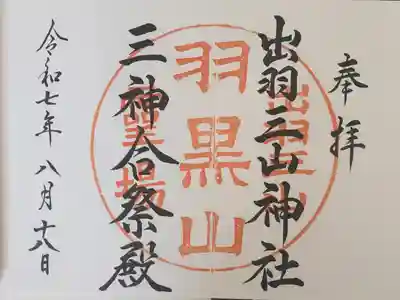 奉拝
出羽三山神社
羽黒山
三神合祭殿
令和七年八月十八日